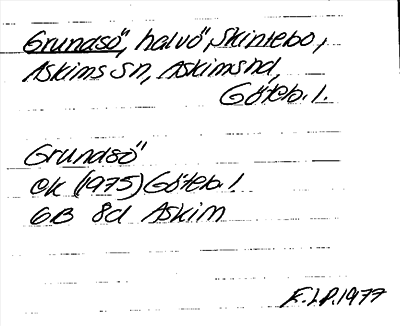 Grundsö, halvö, Skintebo,
Askims sn, Askims hd,
Göteb. l.
Grundsö
ek (1975) Göteb. l
6B 8d Askim
F.LP. 1977